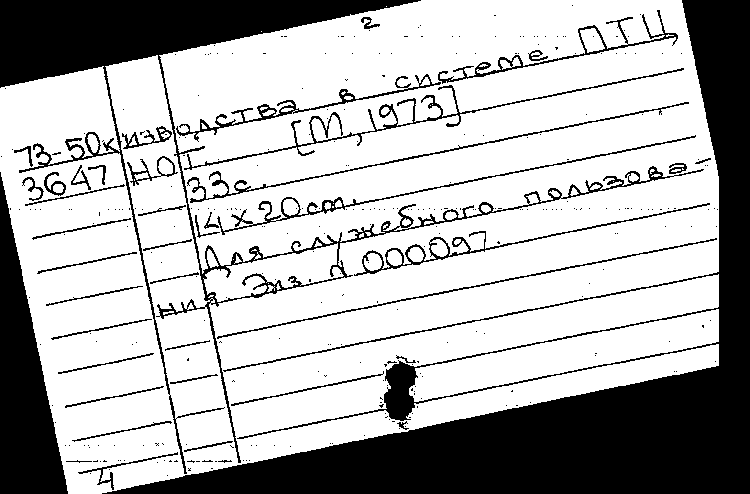 2
73-50к изводства в системе ПТЦ,
3647 НОТ. [М, 1973]
33с.
14 x 20 cm.
Для служебного пользова-
ния. Экз. N 000097.
4